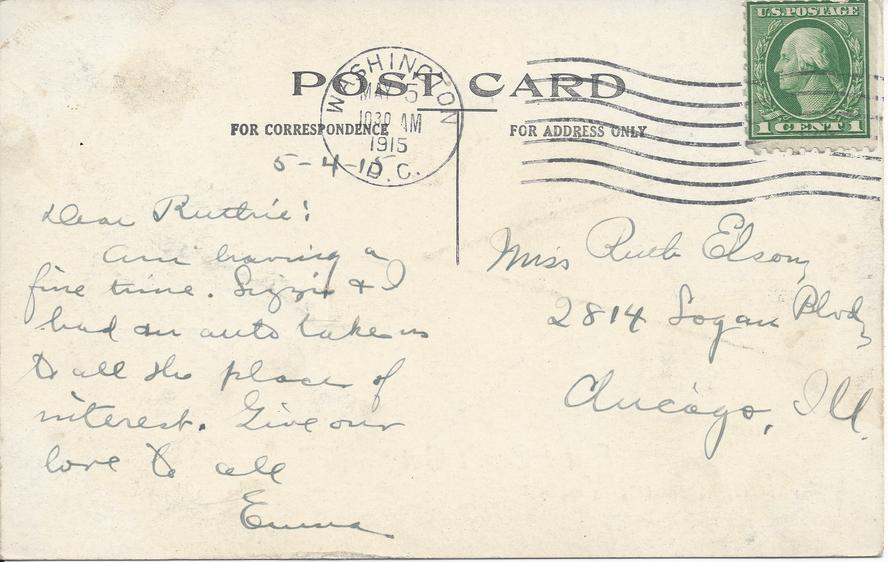 U.S. POSTAGE
1 CENT 1
POST CARD
WASHINGTON
MAY 5
1030 AM
1915
D.C.
FOR CORRESPONDENCE
FOR ADDRESS ONLY
5-4-15
Dear Ruthie:
Am having a
fine time. Lizzie & I
had an auto take us
to all the place of
interest. Give our
love to all
Emma
Miss Ruth Elson,
2814 Logan Blvd,
Chicago, Ill.